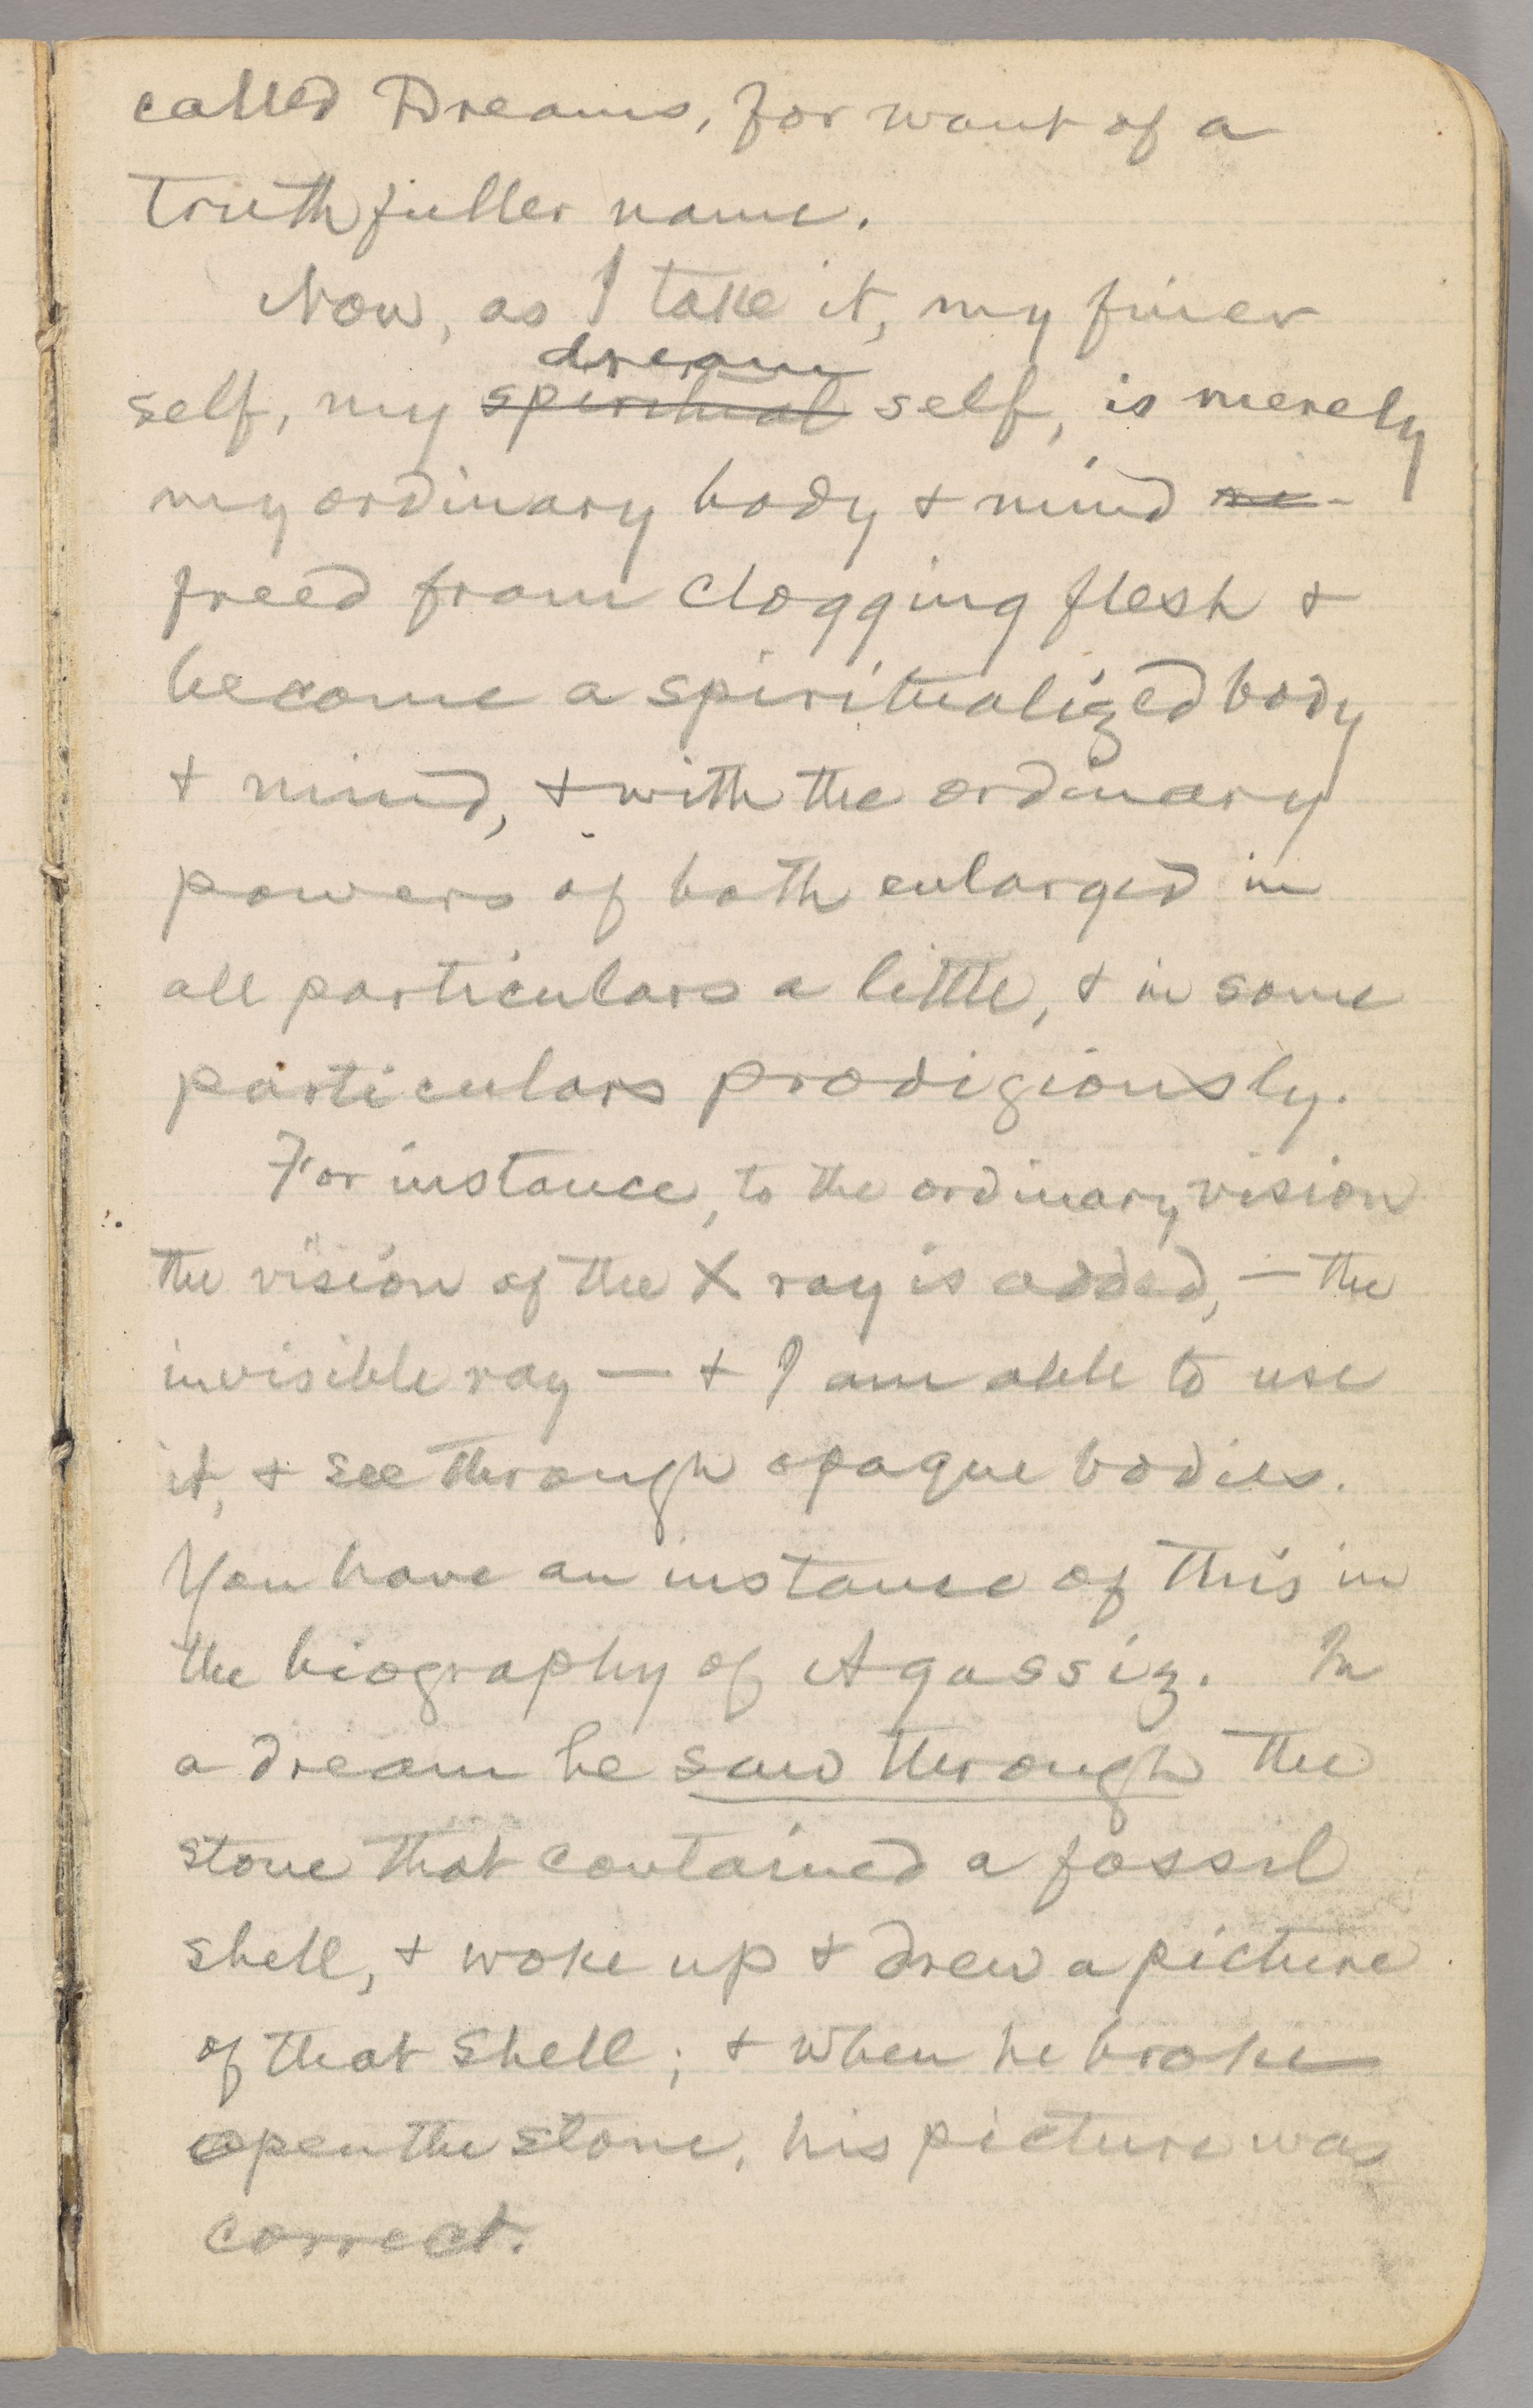 called Dreams, for want of a
truthfuller name.
Now, as I take it, my finer
dream
self, my spiritual self, is merely
my ordinary body & mind re-
freed from clogging flesh &
become a spiritualized body
& mind, & with the ordinary
powers of both enlarged in
all particulars a little, & in some
particulars prodigiously.
For instance, to the ordinary vision
the vision of the X ray is added, — the
invisible ray — & I am able to use
it, & see through opaque bodies.
You have an instance of this in
the biography of Agassiz. In
a dream he saw through the
stone that contained a fossil
shell, & woke up & drew a picture
of that shell; & when he broke
open the stone, his picture was
correct.